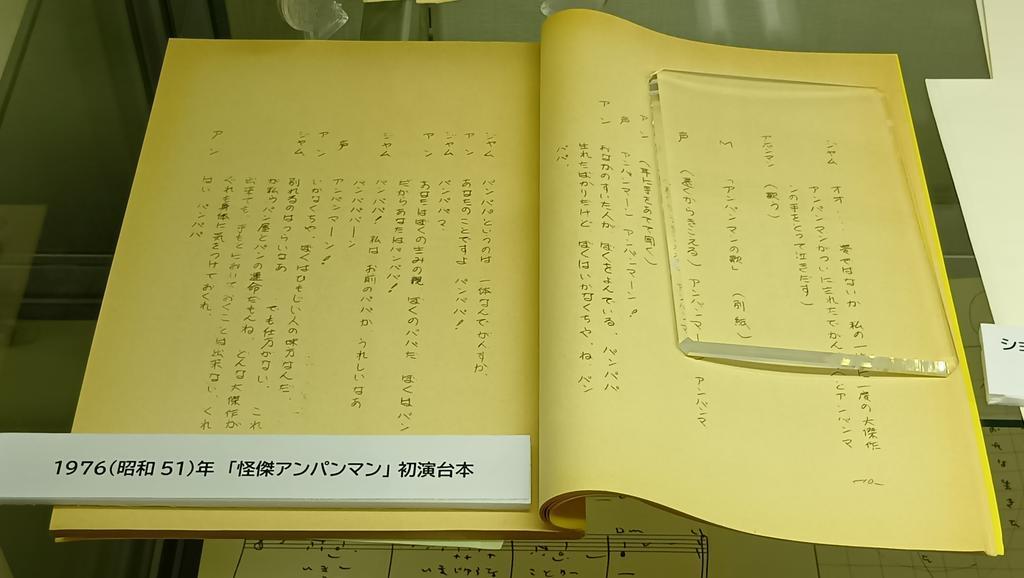 ジャム　オオ……　夢ではないか　私の一生に一度の大傑作
アンパンマンがついにうまれたでかんすとアンパンマ
ンの手をとって泣きだす）
アンパンマン　（歌う）
M　「アンパンマンの歌」　（別紙）
声　（遠くからきこえる）アンパンマーン　アンパンマ
アン　（耳に手をあてて聞く）
声　アンパンマーン　アンパンマーン！
アン　おなかのすいた人が　ぼくをよんでいる、パンパパ
生れたばかりだけど　ぼくはいかなくちゃ、ね、パン
パパ、
—10—
ジャム　パンパパというのは　一体なんでかんすか、
アン　あなたのことですよ　パンパパ！
ジャム　パンパパ？
アン　あなたはぼくの生みの親　ぼくのパパだ　ぼくはパン
だからあなたはパンパパ！
ジャム　パンパパ！　私は　お前のパパか、うれしいなあ
パンパパパーン
声　アンパンマーン！
アン　いかなくちゃ、ぼくはひもじい人の味方なんだ、
ジャム　別れるのはつらいなあ　でも仕方がない、これ
が私らパン屋とパンの運命だもんね、どんな大傑作が
出来ても、手もとにおいておくことは出来ない、くれ
ぐれも身体に気をつけておくれ、
アン　はい　パンパパ
1976(昭和 51)年 「怪傑アンパンマン」初演台本
ショ